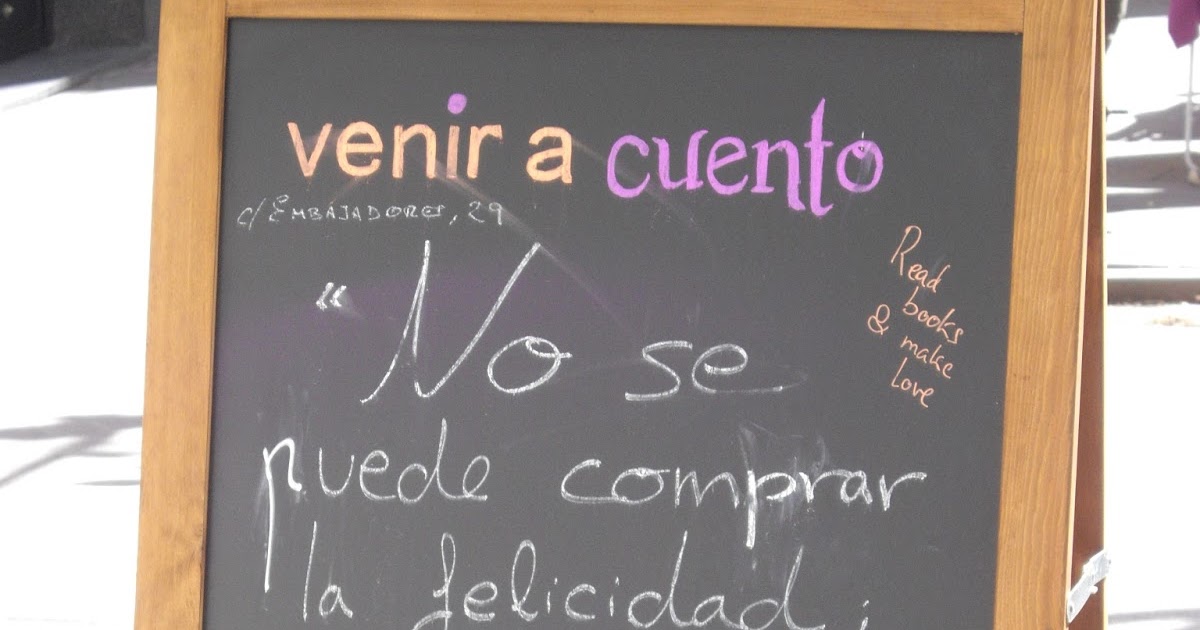 venir a cuento
c/ EMBAJADORES, 29
Read
books
& make
love
"No se
puede comprar
la felicidad;